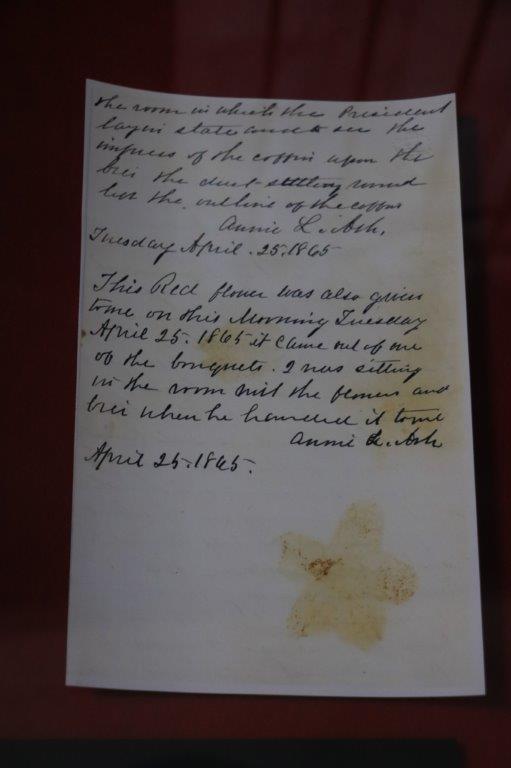 the room in which the President
lay in state and to see the
impress of the coffin upon the
bier the dust settling round
left the outline of the coffin
Annie L. Ash,
Tuesday April. 25. 1865
This Red flower was also given
to me on this Morning Tuesday
April 25. 1865 it came out of one
of the bouquets. I was sitting
in the room with the flowers and
bier when he handed it to me
Annie L. Ash
April 25. 1865.